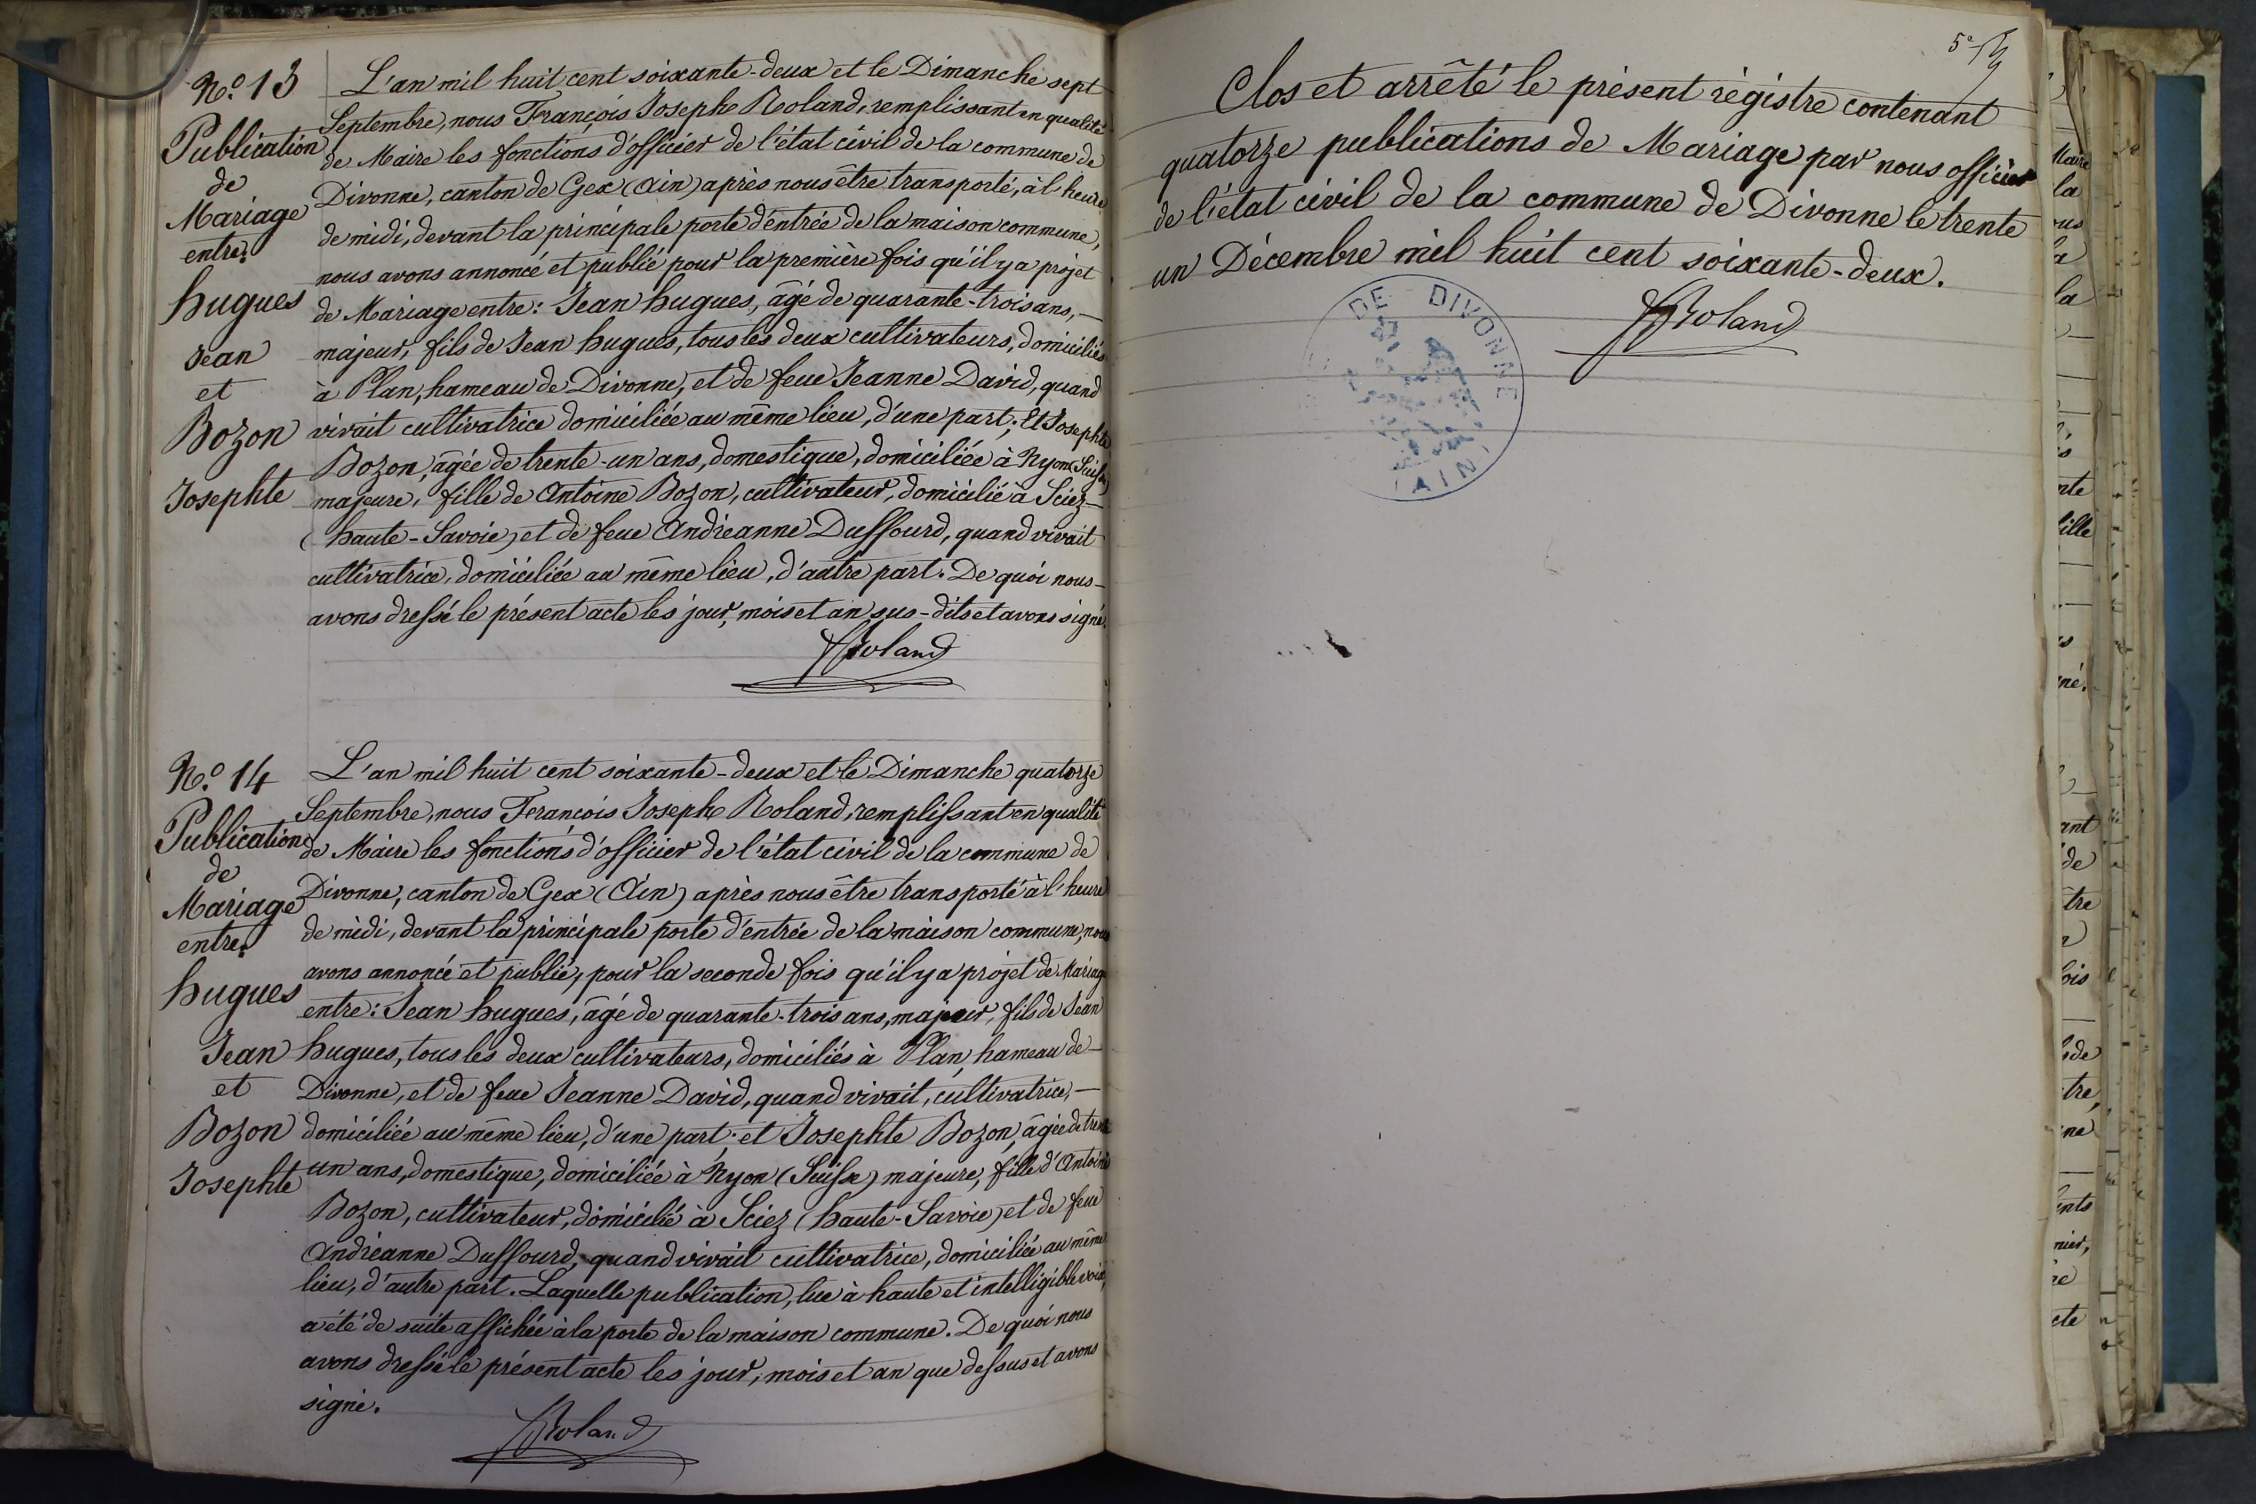 N.o 13
Publication
de
Mariage
entre:
Hugues
Jean
et
Bozon
Josephte
L'an mil huit cent soixante-deux et le Dimanche sept
Septembre, nous François Joseph Roland, remplissant en qualité
de Maire les fonctions d'officier de l'état civil de la commune de
Divonne, canton de Gex (Ain) après nous être transporté, à l'heure
de midi, devant la principale porte d'entrée de la maison commune,
nous avons annoncé et publié pour la première fois qu'il y a projet
de Mariage entre: Jean Hugues, âgé de quarante-trois ans,
majeur, fils de Jean Hugues, tous les deux cultivateurs, domiciliés
à Plan, hameau de Divonne, et de feue Jeanne David, quand
vivait cultivatrice domiciliée au même lieu, d'une part; Et Josephte
Bozon, âgée de trente-un ans, domestique, domiciliée à Nyon (Suisse)
majeure, fille de Antoine Bozon, cultivateur, domicilié à Sciez
(Haute-Savoie) et de feue Andréanne Duffourd, quand vivait
cultivatrice, domiciliée au même lieu, d'autre part. De quoi nous
avons dressé le présent acte les jour, mois et an sus-dits et avons signé.
Roland
N.o 14
Publication
de
Mariage
entre:
Hugues
Jean
et
Bozon
Josephte
L'an mil huit cent soixante-deux et le Dimanche quatorze
Septembre, nous François Joseph Roland, remplissant en qualité
de Maire les fonctions d'officier de l'état civil de la commune de
Divonne, canton de Gex (Ain) après nous être transporté à l'heure
de midi, devant la principale porte d'entrée de la maison commune, nous
avons annoncé et publié, pour la seconde fois qu'il y a projet de Mariage
entre: Jean Hugues, âgé de quarante-trois ans, majeur, fils de Jean
Hugues, tous les deux cultivateurs, domiciliés à Plan, hameau de
Divonne, et de feue Jeanne David, quand vivait, cultivatrice,
domiciliée au même lieu, d'une part; et Josephte Bozon, âgée de trente
un ans, domestique, domiciliée à Nyon (Suisse) majeure, fille d'Antoine
Bozon, cultivateur, domicilié à Sciez (Haute-Savoie) et de feue
Andréanne Duffourd, quand vivait cultivatrice, domiciliée au même
lieu, d'autre part. Laquelle publication, lue à haute et intelligible voix,
a été de suite affichée à la porte de la maison commune. De quoi nous
avons dressé le présent acte les jour, mois et an que dessus et avons
signé.
Roland
5e
Clos et arrêté le présent régistre contenant
quatorze publications de Mariage par nous officier
de l'état civil de la commune de Divonne le trente
un Décembre mil huit cent soixante-deux.
Roland
DE DIVONNE
(AIN)